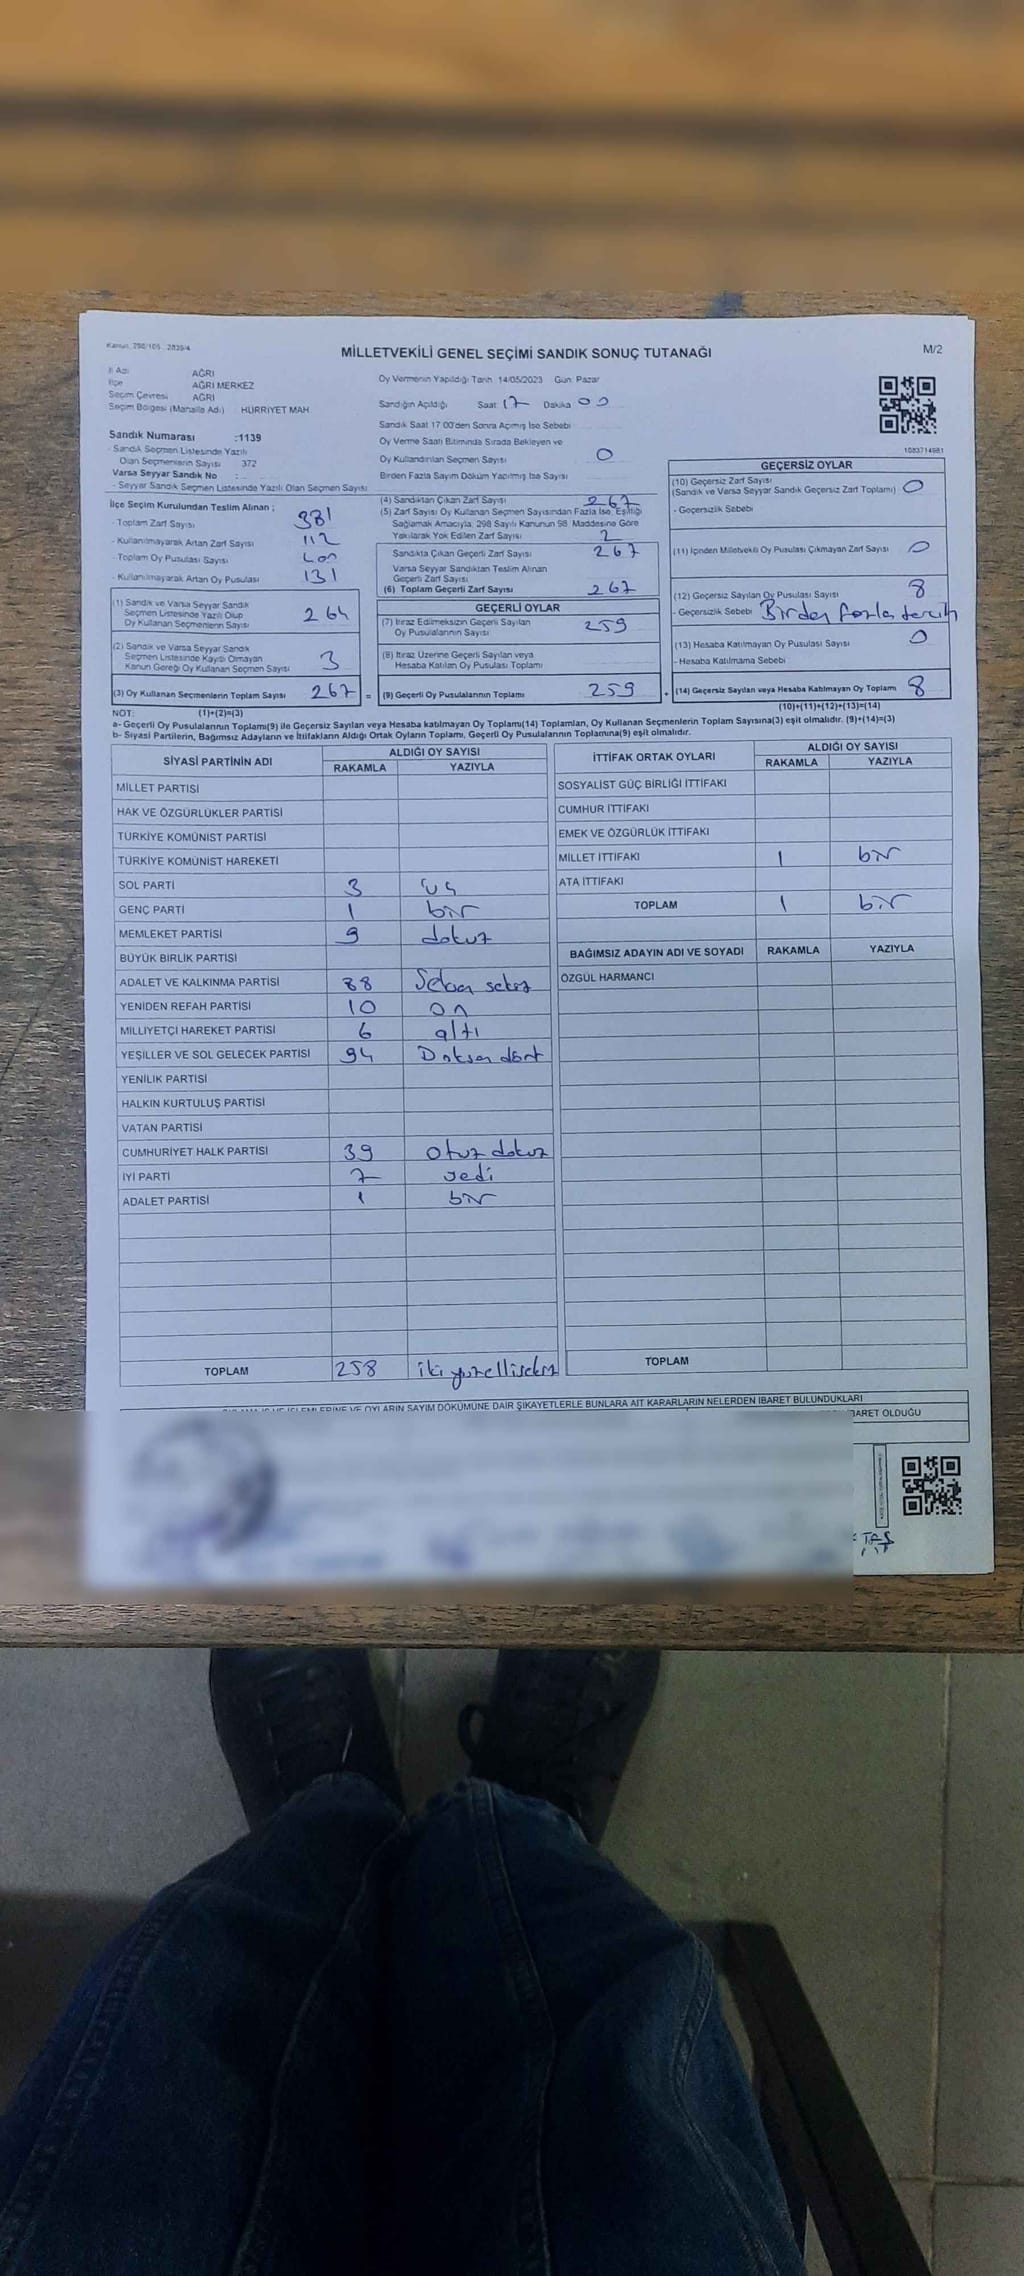 Kanun: 298/105 . 2839/4
MİLLETVEKİLİ GENEL SEÇİMİ SANDIK SONUÇ TUTANAĞI
M/2
İl Adı AĞRI
İlçe AĞRI MERKEZ
Seçim Çevresi AĞRI
Seçim Bölgesi (Mahalle Adı) HÜRRİYET MAH
Sandık Numarası :1139
- Sandık Seçmen Listesinde Yazılı
Olan Seçmenlerin Sayısı 372
Varsa Seyyar Sandık No :
- Seyyar Sandık Seçmen Listesinde Yazılı Olan Seçmen Sayısı
Oy Vermenin Yapıldığı Tarih 14/05/2023 Gün: Pazar
Sandığın Açıldığı Saat 17 Dakika 00
Sandık Saat 17.00'den Sonra Açımış İse Sebebi
Oy Verme Saati Bitiminde Sırada Bekleyen ve
Oy Kullandırılan Seçmen Sayısı 0
Birden Fazla Sayım Döküm Yapılmış İse Sayısı
1083714981
İlçe Seçim Kurulundan Teslim Alınan ;
- Toplam Zarf Sayısı 381
- Kullanılmayarak Artan Zarf Sayısı 112
- Toplam Oy Pusulası Sayısı 400
- Kullanılmayarak Artan Oy Pusulası 131
(1) Sandık ve Varsa Seyyar Sandık
Seçmen Listesinde Yazılı Olup
Oy Kullanan Seçmenlerin Sayısı 264
(2) Sandık ve Varsa Seyyar Sandık
Seçmen Listesinde Kayıtlı Olmayan
Kanun Gereği Oy Kullanan Seçmen Sayısı 3
(3) Oy Kullanan Seçmenlerin Toplam Sayısı 267 =
(4) Sandıktan Çıkan Zarf Sayısı 267
(5) Zarf Sayısı Oy Kullanan Seçmen Sayısından Fazla İse, Eşitliği
Sağlamak Amacıyla, 298 Sayılı Kanunun 98. Maddesine Göre
Yakılarak Yok Edilen Zarf Sayısı 2
Sandıkta Çıkan Geçerli Zarf Sayısı 267
Varsa Seyyar Sandıktan Teslim Alınan
Geçerli Zarf Sayısı
(6) Toplam Geçerli Zarf Sayısı 267
GEÇERLİ OYLAR
(7) İtiraz Edilmeksizin Geçerli Sayılan
Oy Pusulalarının Sayısı 259
(8) İtiraz Üzerine Geçerli Sayılan veya
Hesaba Katılan Oy Pusulası Toplamı
(9) Geçerli Oy Pusulalarının Toplamı 259 +
GEÇERSİZ OYLAR
(10) Geçersiz Zarf Sayısı 0
(Sandık ve Varsa Seyyar Sandık Geçersiz Zarf Toplamı)
- Geçersizlik Sebebi
(11) İçinden Milletvekili Oy Pusulası Çıkmayan Zarf Sayısı 0
(12) Geçersiz Sayılan Oy Pusulası Sayısı 8
- Geçersizlik Sebebi Birden fazla tercih
(13) Hesaba Katılmayan Oy Pusulası Sayısı 0
- Hesaba Katılmama Sebebi
(14) Geçersiz Sayılan veya Hesaba Katılmayan Oy Toplamı 8
NOT: (1)+(2)=(3)
(10)+(11)+(12)+(13)=(14)
a- Geçerli Oy Pusulalarının Toplamı(9) ile Geçersiz Sayılan veya Hesaba katılmayan Oy Toplamı(14) Toplamları, Oy Kullanan Seçmenlerin Toplam Sayısına(3) eşit olmalıdır. (9)+(14)=(3)
b- Siyasi Partilerin, Bağımsız Adayların ve İttifakların Aldığı Ortak Oyların Toplamı, Geçerli Oy Pusulalarının Toplamına(9) eşit olmalıdır.
SİYASİ PARTİNİN ADI
ALDIĞI OY SAYISI
RAKAMLA YAZIYLA
MİLLET PARTİSİ
HAK VE ÖZGÜRLÜKLER PARTİSİ
TÜRKİYE KOMÜNİST PARTİSİ
TÜRKİYE KOMÜNİST HAREKETİ
SOL PARTİ 3 üç
GENÇ PARTİ 1 bir
MEMLEKET PARTİSİ 9 dokuz
BÜYÜK BİRLİK PARTİSİ
ADALET VE KALKINMA PARTİSİ 88 Seksen sekiz
YENİDEN REFAH PARTİSİ 10 on
MİLLİYETÇİ HAREKET PARTİSİ 6 altı
YEŞİLLER VE SOL GELECEK PARTİSİ 94 Doksan dört
YENİLİK PARTİSİ
HALKIN KURTULUŞ PARTİSİ
VATAN PARTİSİ
CUMHURİYET HALK PARTİSİ 39 otuz dokuz
İYİ PARTİ 7 yedi
ADALET PARTİSİ 1 bir
TOPLAM 258 iki yüz elli sekiz
İTTİFAK ORTAK OYLARI
ALDIĞI OY SAYISI
RAKAMLA YAZIYLA
SOSYALİST GÜÇ BİRLİĞİ İTTİFAKI
CUMHUR İTTİFAKI
EMEK VE ÖZGÜRLÜK İTTİFAKI
MİLLET İTTİFAKI 1 bir
ATA İTTİFAKI
TOPLAM 1 bir
BAĞIMSIZ ADAYIN ADI VE SOYADI RAKAMLA YAZIYLA
ÖZGÜL HARMANCI
TOPLAM
VE OYLARIN SAYIM DÖKÜMÜNE DAİR ŞİKAYETLERLE BUNLARA AİT KARARLARIN NELERDEN İBARET BULUNDUKLARI
İBARET OLDUĞU